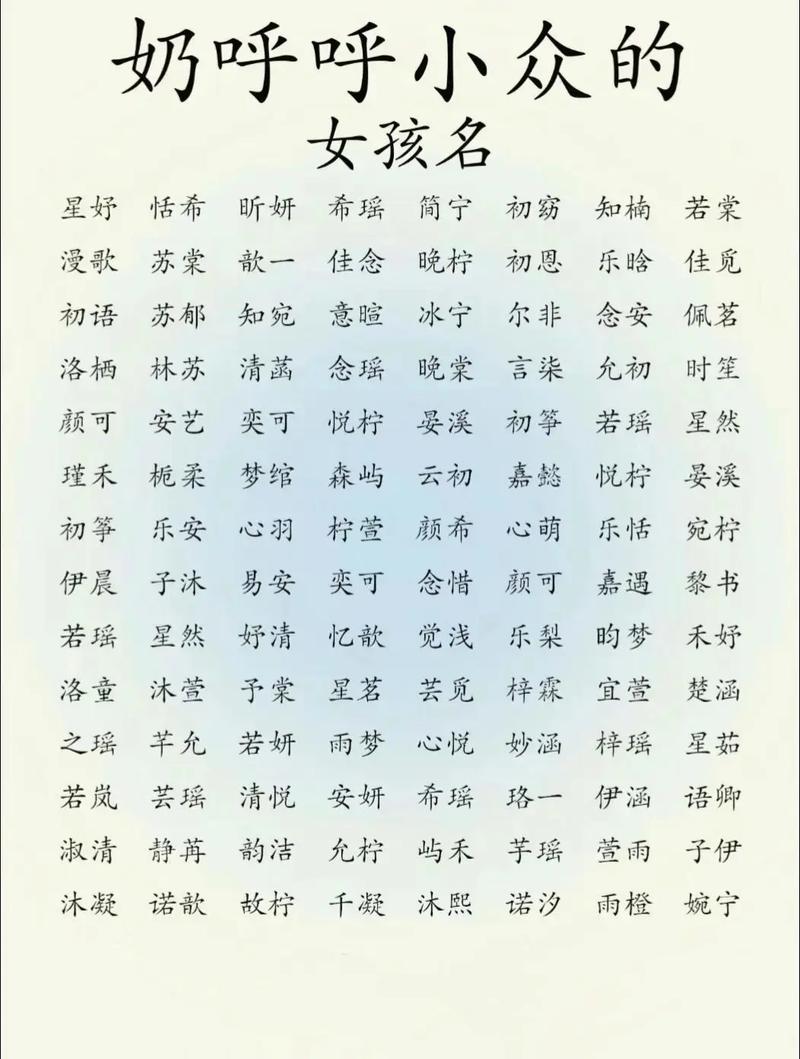 奶呼呼小众的
女孩名
星妤 恬希 昕妍 希瑶 简宁 初窈 知楠 若棠
漫歌 苏棠 歆一 佳念 晚柠 初恩 乐晗 佳觅
初语 苏郁 知宛 意暄 冰宁 尔非 念安 佩茗
洛栖 林苏 清菡 念瑶 晚棠 言柒 允初 时笙
颜可 安艺 奕可 悦柠 晏溪 初筝 若瑶 星然
瑾禾 栀柔 梦绾 森屿 云初 嘉懿 悦柠 晏溪
初筝 乐安 心羽 柠萱 颜希 心萌 乐恬 宛柠
伊晨 子沐 易安 奕可 念惜 颜可 嘉遇 黎书
若瑶 星然 妤清 忆歆 觉浅 乐梨 昀梦 禾妤
洛童 沐萱 予棠 星茗 芸觅 梓霖 宜萱 楚涵
之瑶 芊允 若妍 雨梦 心悦 妙涵 梓瑶 星茹
若岚 芸瑶 清悦 安妍 希瑶 珞一 伊涵 语卿
淑清 静苒 韵洁 允柠 屿禾 芋瑶 萱雨 子伊
沐凝 诺歆 故柠 千凝 沐熙 诺汐 雨橙 婉宁